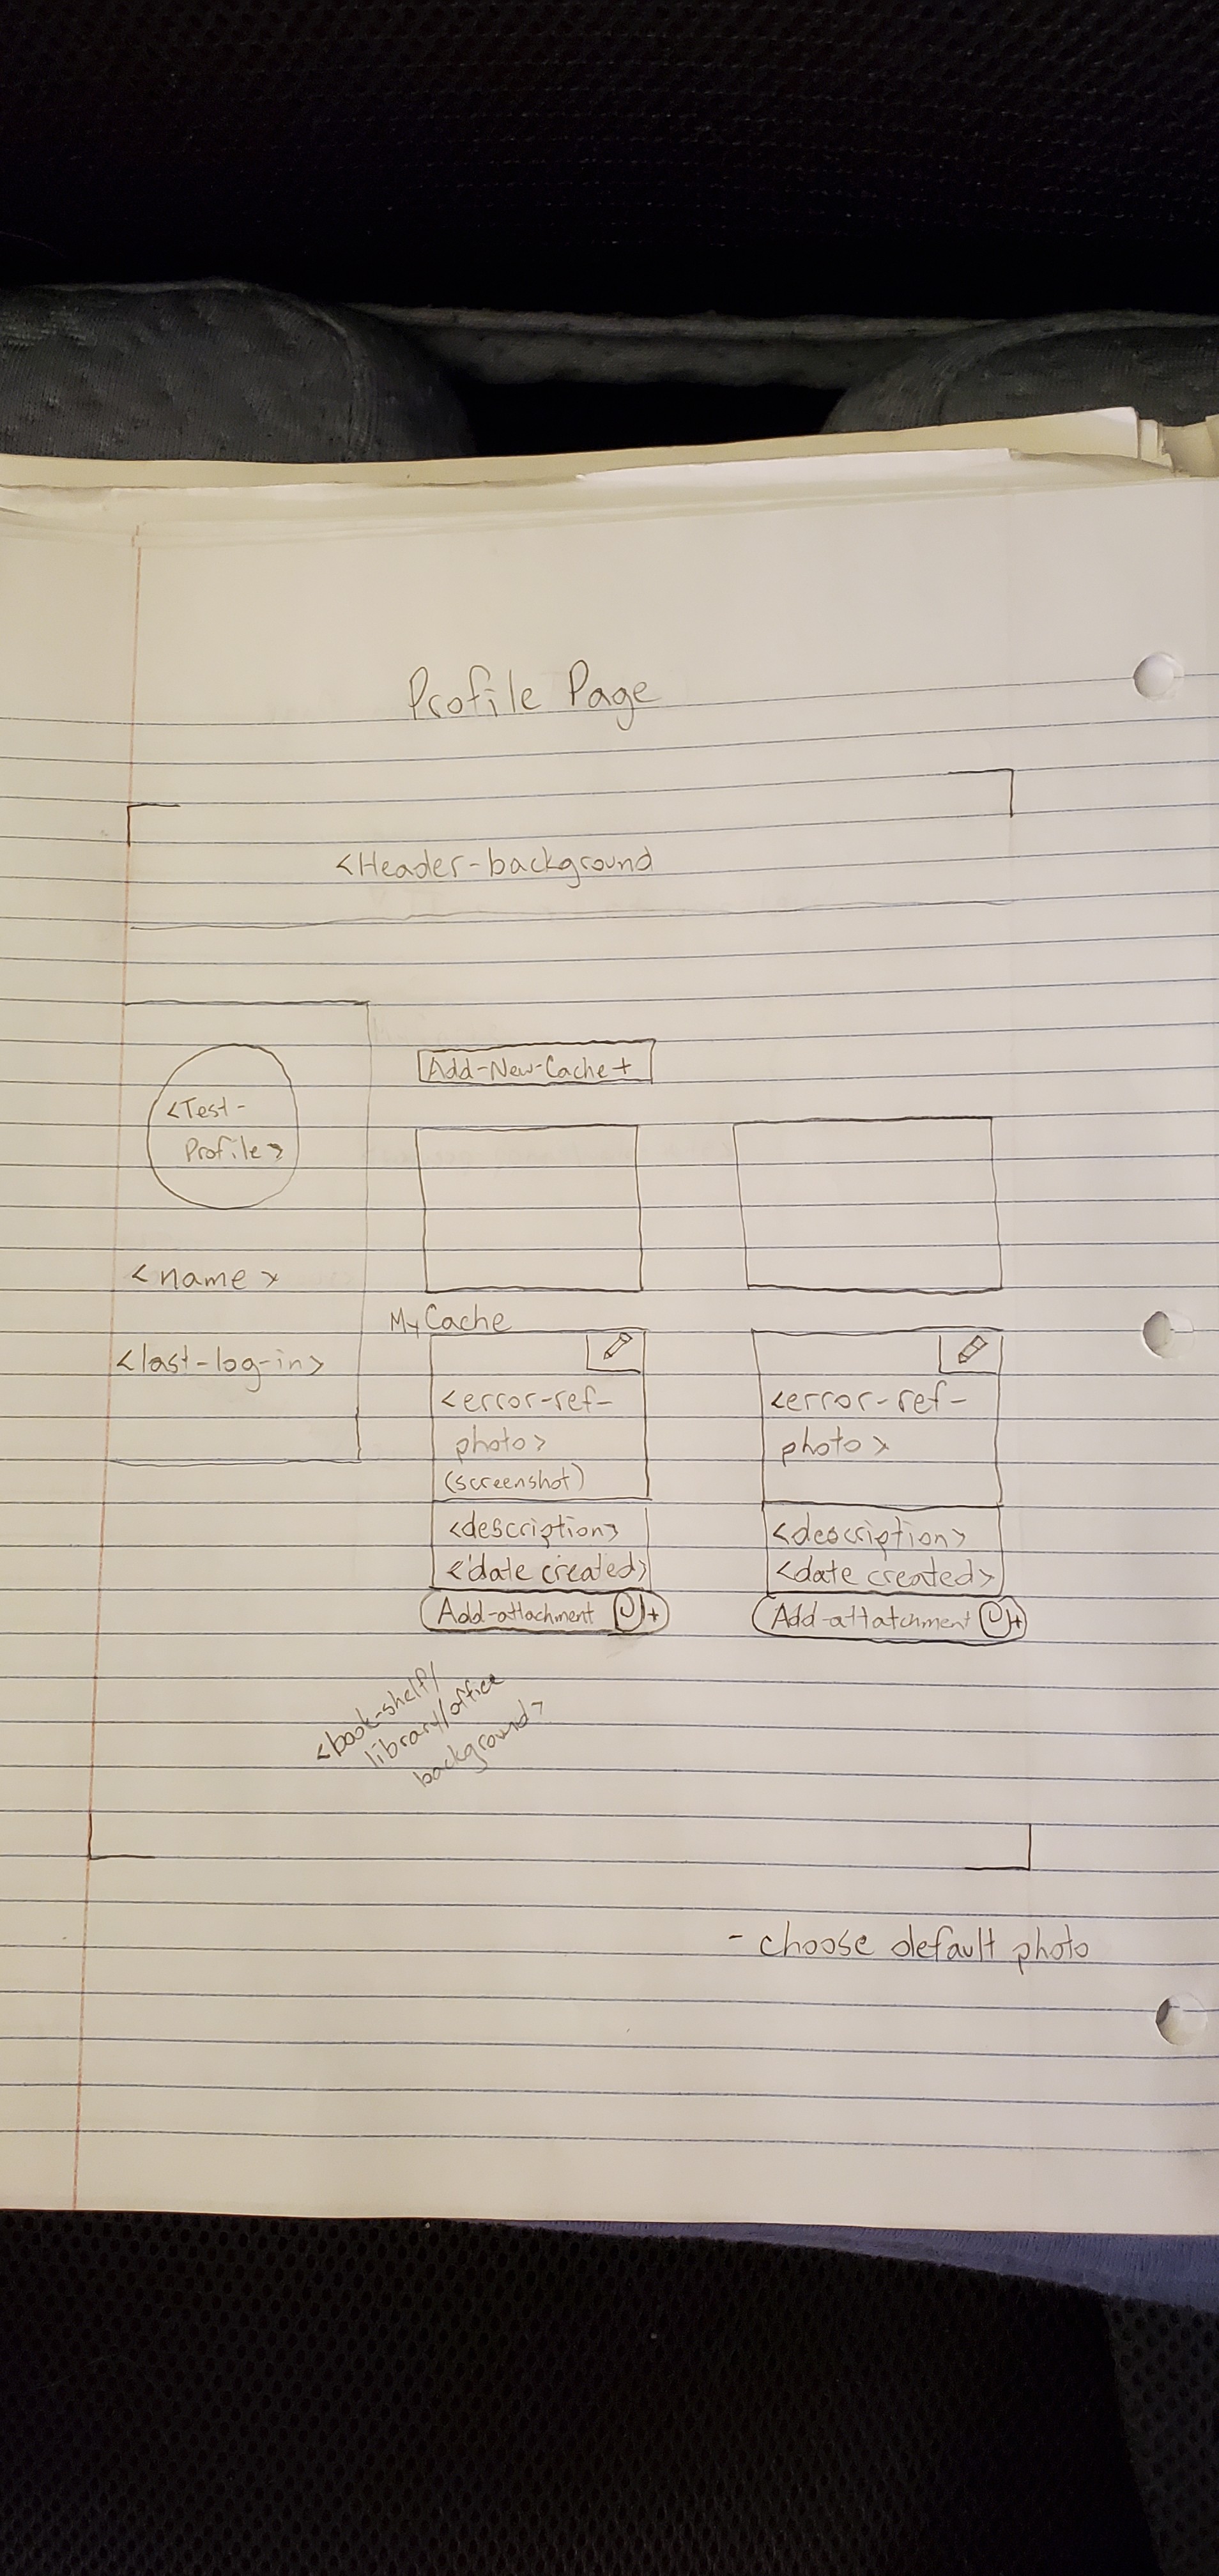 Profile Page
<Header-background
Add-New-Cache +
<Test-
Profile>
<name>
My Cache
<last-log-in>
<error-ref-
photo>
(screenshot)
<description>
<date created>
Add-attachment +
<error-ref-
photo>
<description>
<date created>
Add-attatchment +
<book-shelf/
library/office
background>
- choose default photo